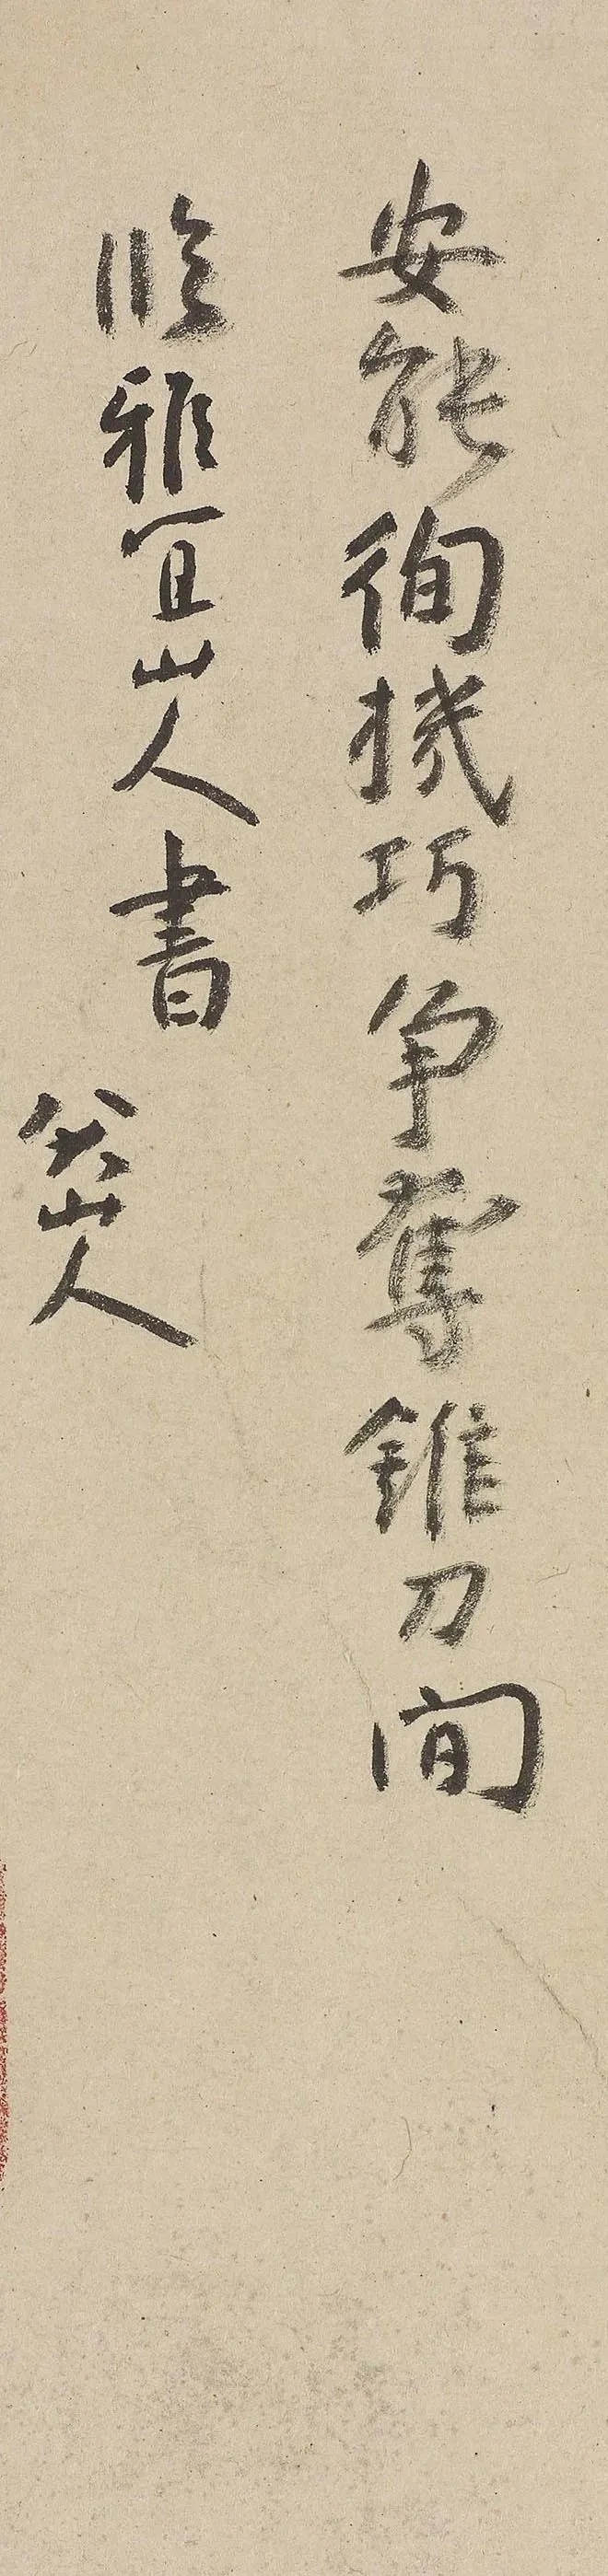 安能徇機巧争奪錐刀间
臨雅宜山人書
八大山人